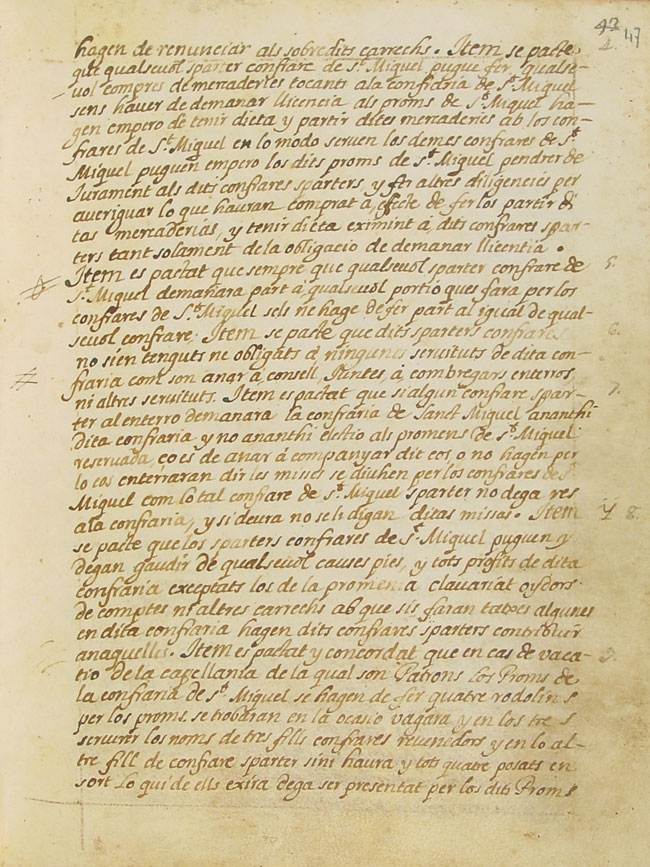 47
hagen de renunciar als sobredits carrechs. Item se pacte
que qualseuol sparter confrare de St. Miquel pugue fer qualse-
uol compres de mercaderies tocants a la confraria de St. Miquel
sens hauer de demanar llicencia als proms de St. Miquel ha-
gen empero de tenir dieta y partir dites mercaderies ab los con-
frares de St. Miquel en lo modo seruen los demes confrares de St.
Miquel puguen empero los dits proms de St. Miquel pendrer de
Iurament als dits confrares sparters, y fer altres diligencies per
aueriguar lo que hauran comprat à, effecte de fer los partir di
tas mercaderias, y tenir dieta eximint à, dits confrares spar-
ters tant solament de la obligacio de demanar llicentia.
Item es pactat que sempre que qualseuol sparter confrare de 5.
St. Miquel demanara part à, qualseuol portio ques fara per los
confrares de St. Miquel sels ne hage de fer part al igual de qual-
seuol confrare. Item se pacte que dits sparters confrares 6.
no sien tenguts ne obligats à ningunes seruituts de dita con-
fraria com son anar à, consell, Iuntes, à, combregars enterros,
ni altres seruituts. Item es pactat que si algun confrare spar- 7.
ter al enterro demanara la confraria de Sanct Miquel ananthi
dita confraria, y no ananthi electio als promens de St. Miquel
reservada, ço es de anar à companyar dit cos, o no hagen per
lo cos enterraran dir les misses se diuhen per los confrares de St.
Miquel com lo tal confrare de St. Miquel sparter no dega res
a la confraria, y si deura no se li digan ditas missas. Item 8.
se pacte que los sparters confrares de St. Miquel puguen y
degan gaudir de qualseuol causes pies, y tots profits de dita
confraria exceptats los de la promenia clauariat oydors
de comptes ni altres carrechs ab que sis faran tatxes algunes
en dita confraria hagen dits confrares sparters contribuir
en aquelles. Item es pactat y concordat que en cas de vaca- 9.
tio de la capellania de la qual son Patrons los Proms de
la confraria de St. Miquel se hagen de fer quatre rodolins
per los proms se trobaran en la ocasio vagara y en los tres
scriurer los noms de tres fills confrares reuenedors y en lo al-
tre fill de confrare sparter sini haura y tots quatre posats en
sort lo qui de ells exira dega ser presentat per los dits Proms